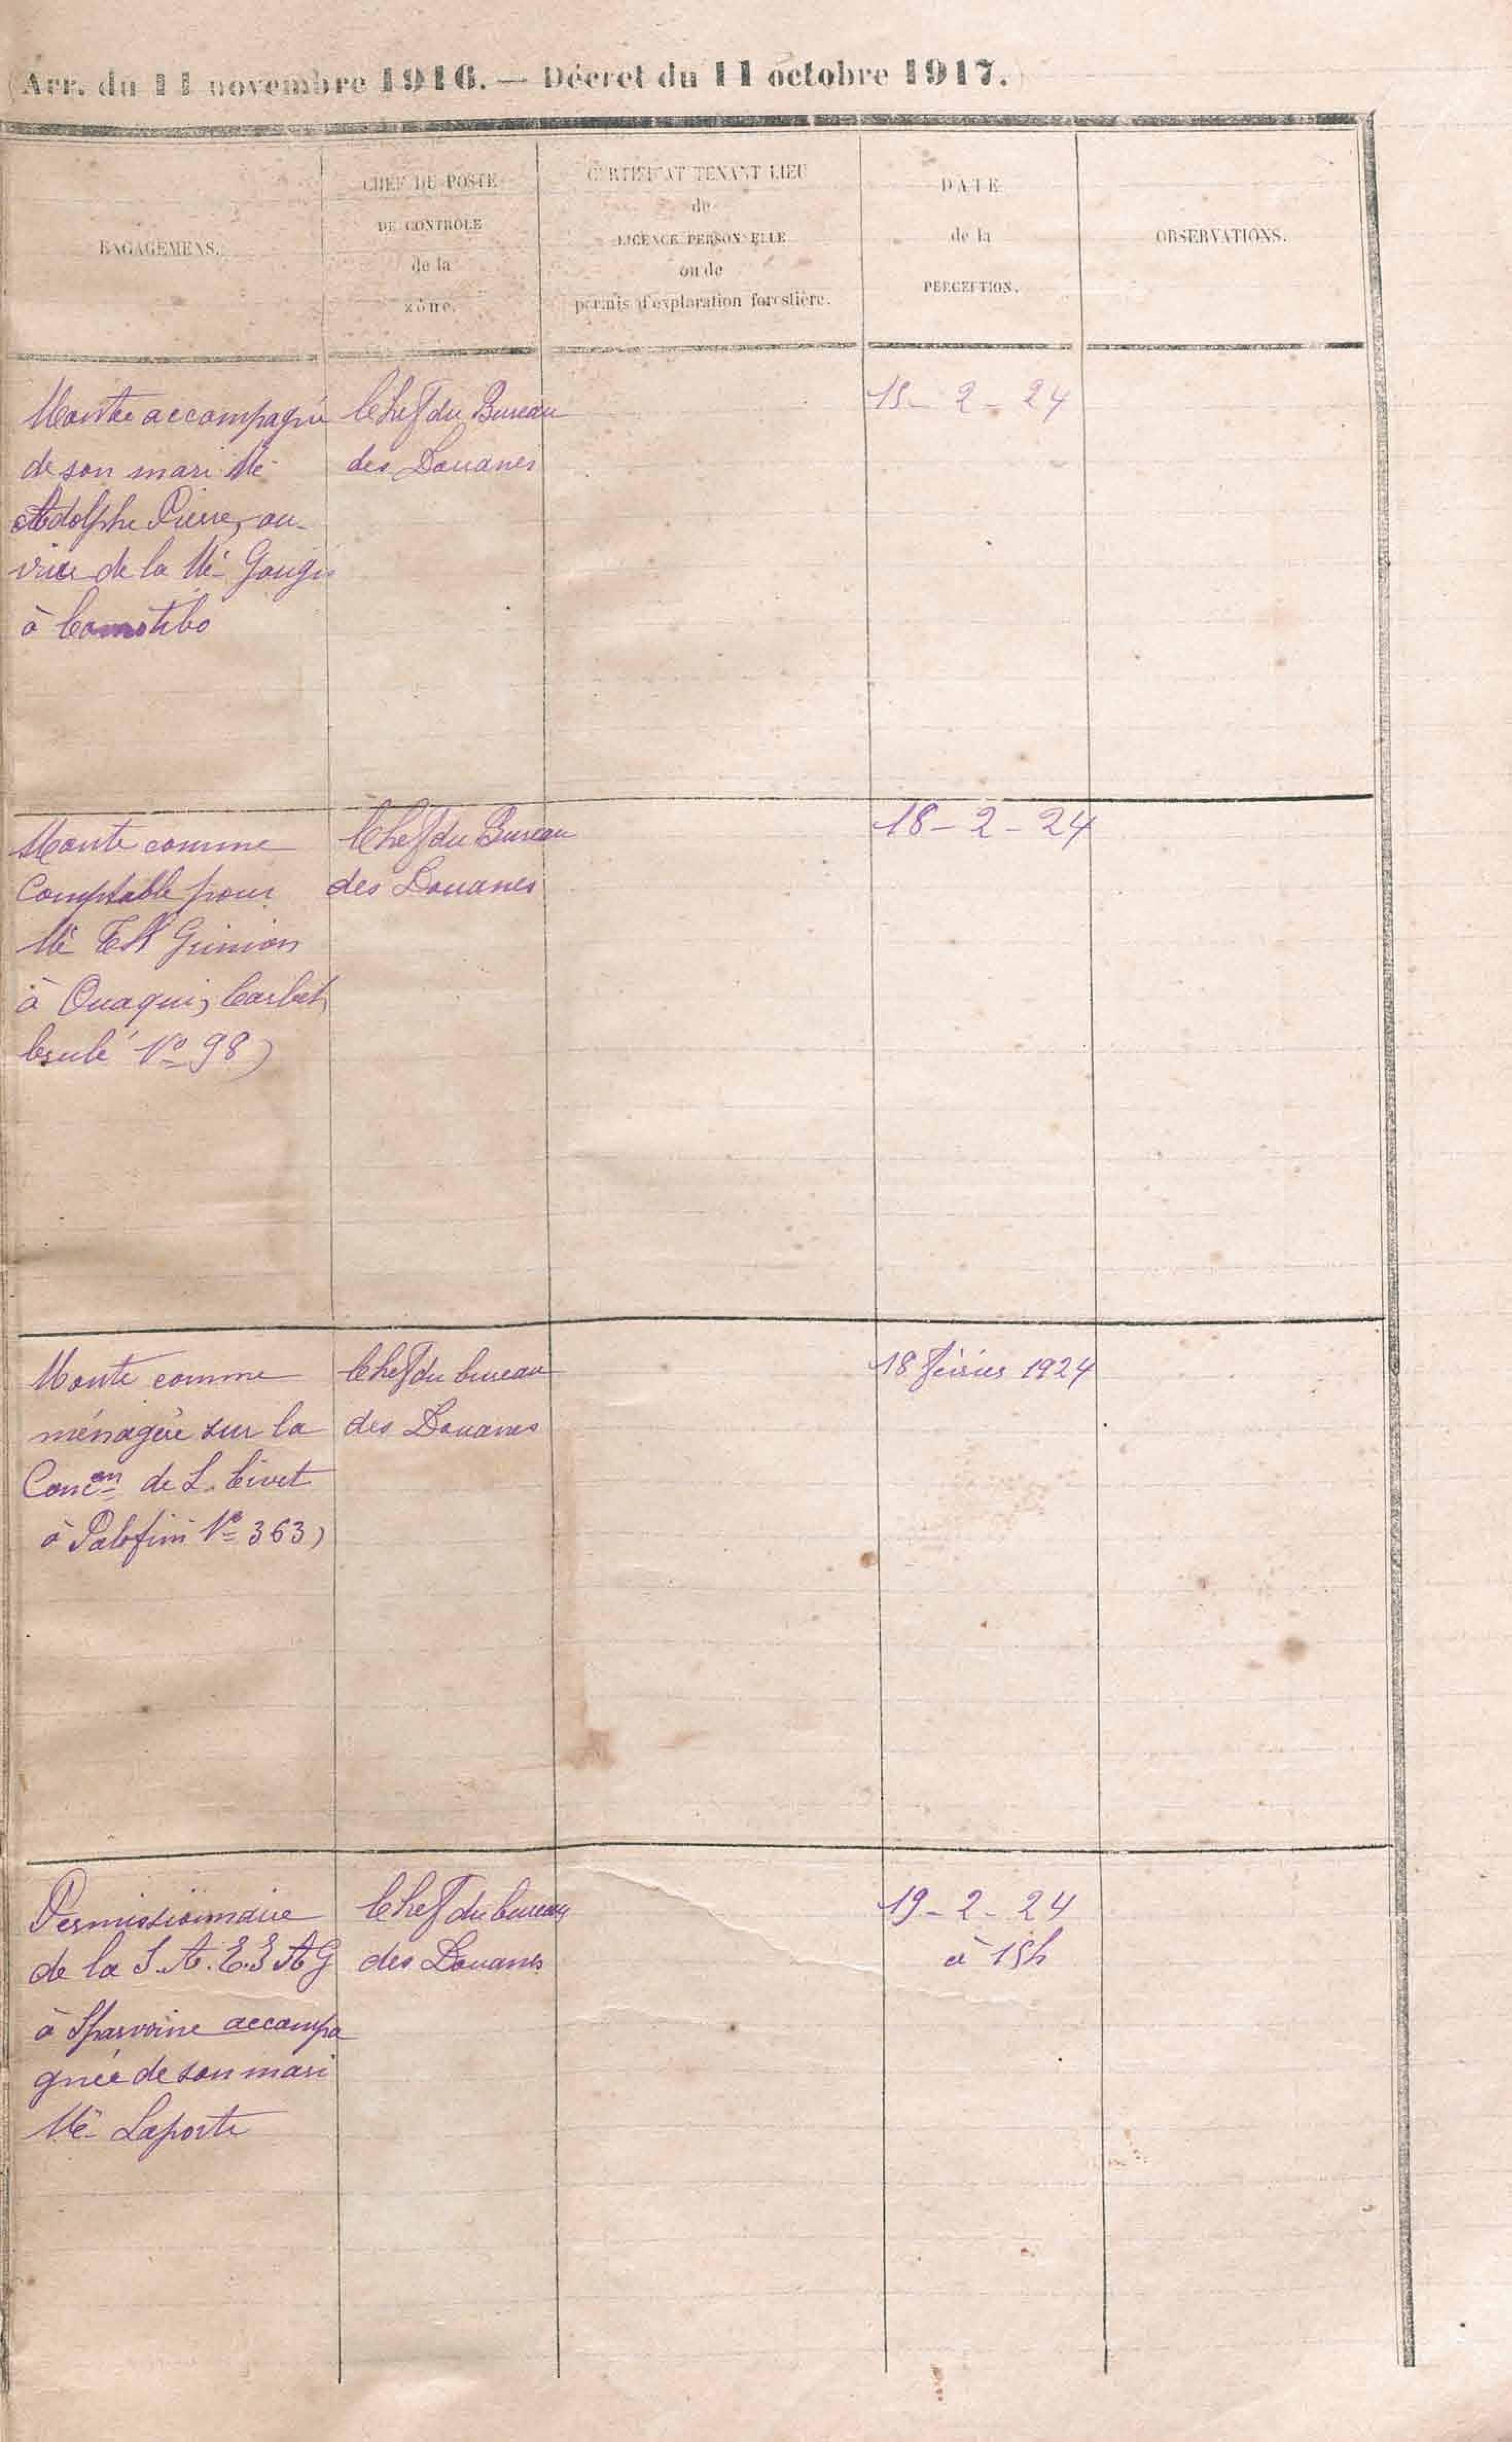 (Arr. du 11 novembre 1916. — Décret du 11 octobre 1917.)
ENGAGEMENS.
CHEF DU POSTE
DE CONTROLE
de la
zône.
CERTIFICAT TENANT LIEU
de
LICENCE PERSONNELLE
ou de
permis d'exploration forestière.
DATE
de la
PERCEPTION.
OBSERVATIONS.
Monte accompagnée
de son mari Mr
Adolphe Pierre, ou-
vrier de la
à
Chef du Bureau
des Douanes
15-2-24
Monte comme
Comptable pour
Grinion
à Ouaqui, Carbet
brulé No 98)
Chef du Bureau
des Douanes
18-2-24
Monte comme
ménagère sur la
Concon de L. Civet
à Palofini No 363)
Chef du bureau
des Douanes
18 février 1924
Permissionnaire
de la S.A.E.S A G
à Sparwine accompa
gnée de son mari
Mr Laporte
Chef du bureau
des Douanes
19-2-24
à 15h